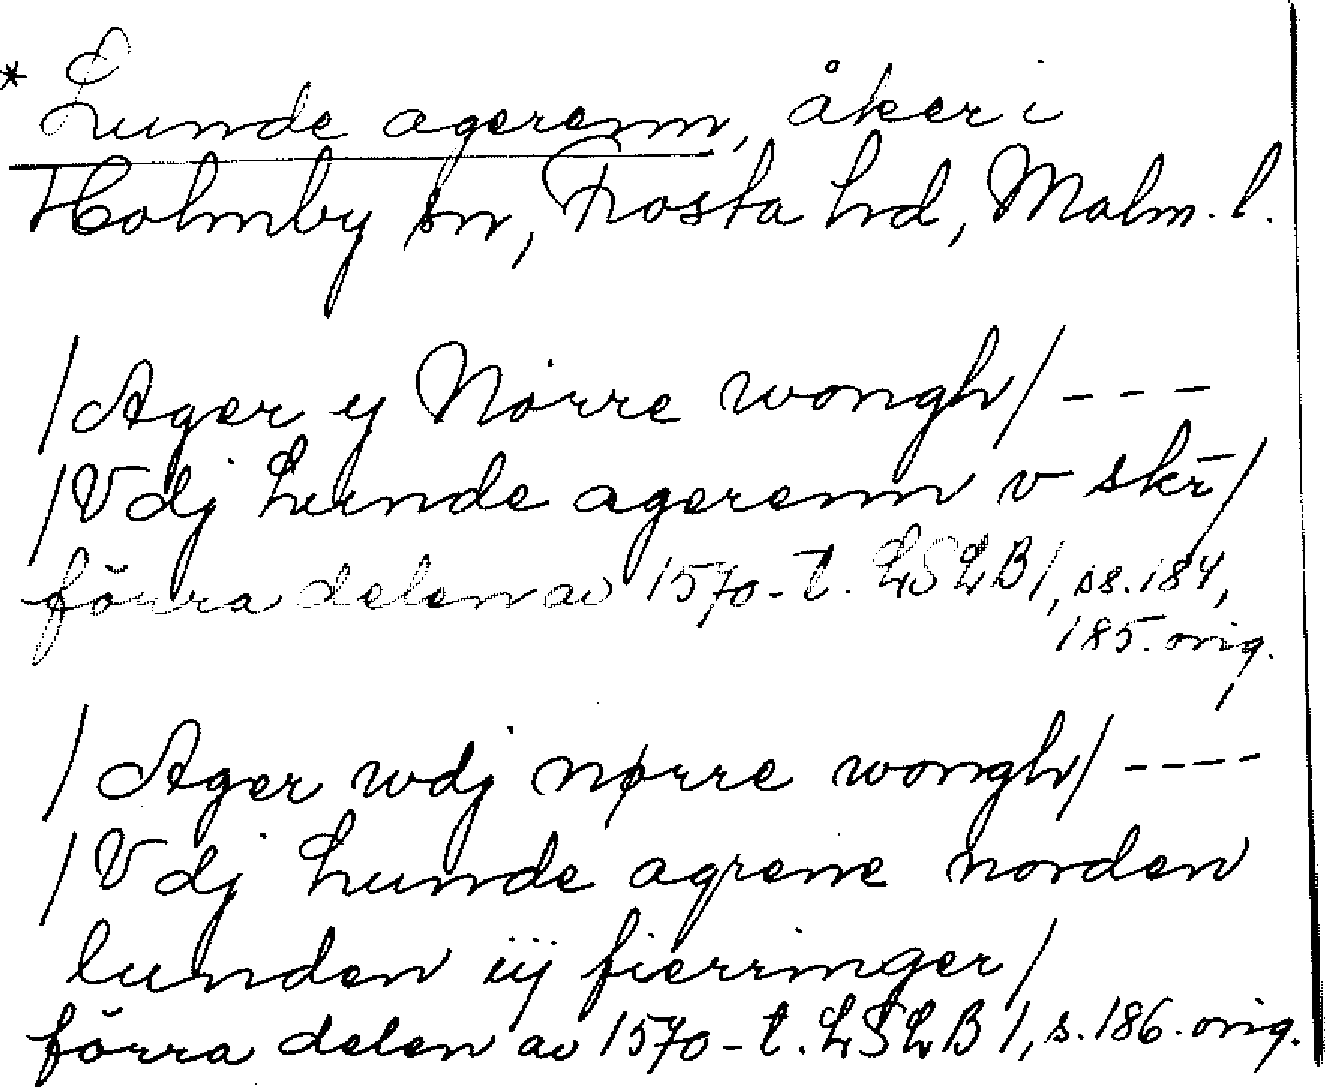 * Lunde agerenn, åker i
Holmby sn, Frosta hd, Malm. l.
/Ager y Nörre wongh/ - - -
/Vdj Lunde agerenn v skr/
förra delen av 1570-t. LSLB 1, ss. 184,
185. orig.
/Ager wdj nørre wongh/ - - - -
/Vdj Lunde agrene norden
lunden iij fierringer/
förra delen av 1570-t. LSLB 1, s. 186. orig.